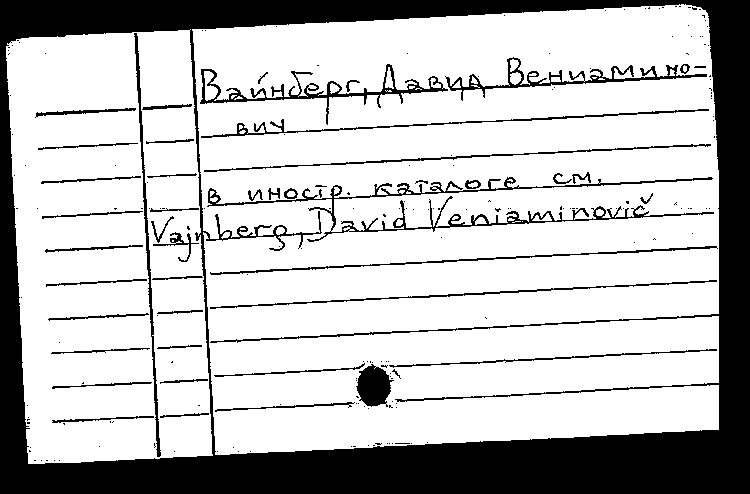 Вайнберг, Давид Вениамино=
вич
в иностр. каталоге см.
Vajnberg, David Veniaminovič